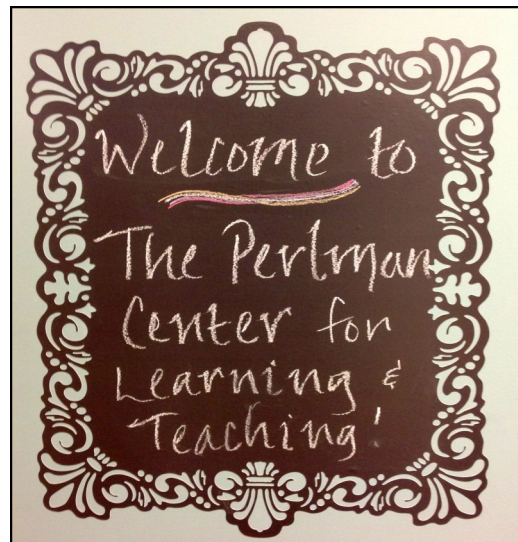 Welcome to
The Perlman
Center for
Learning &
Teaching!